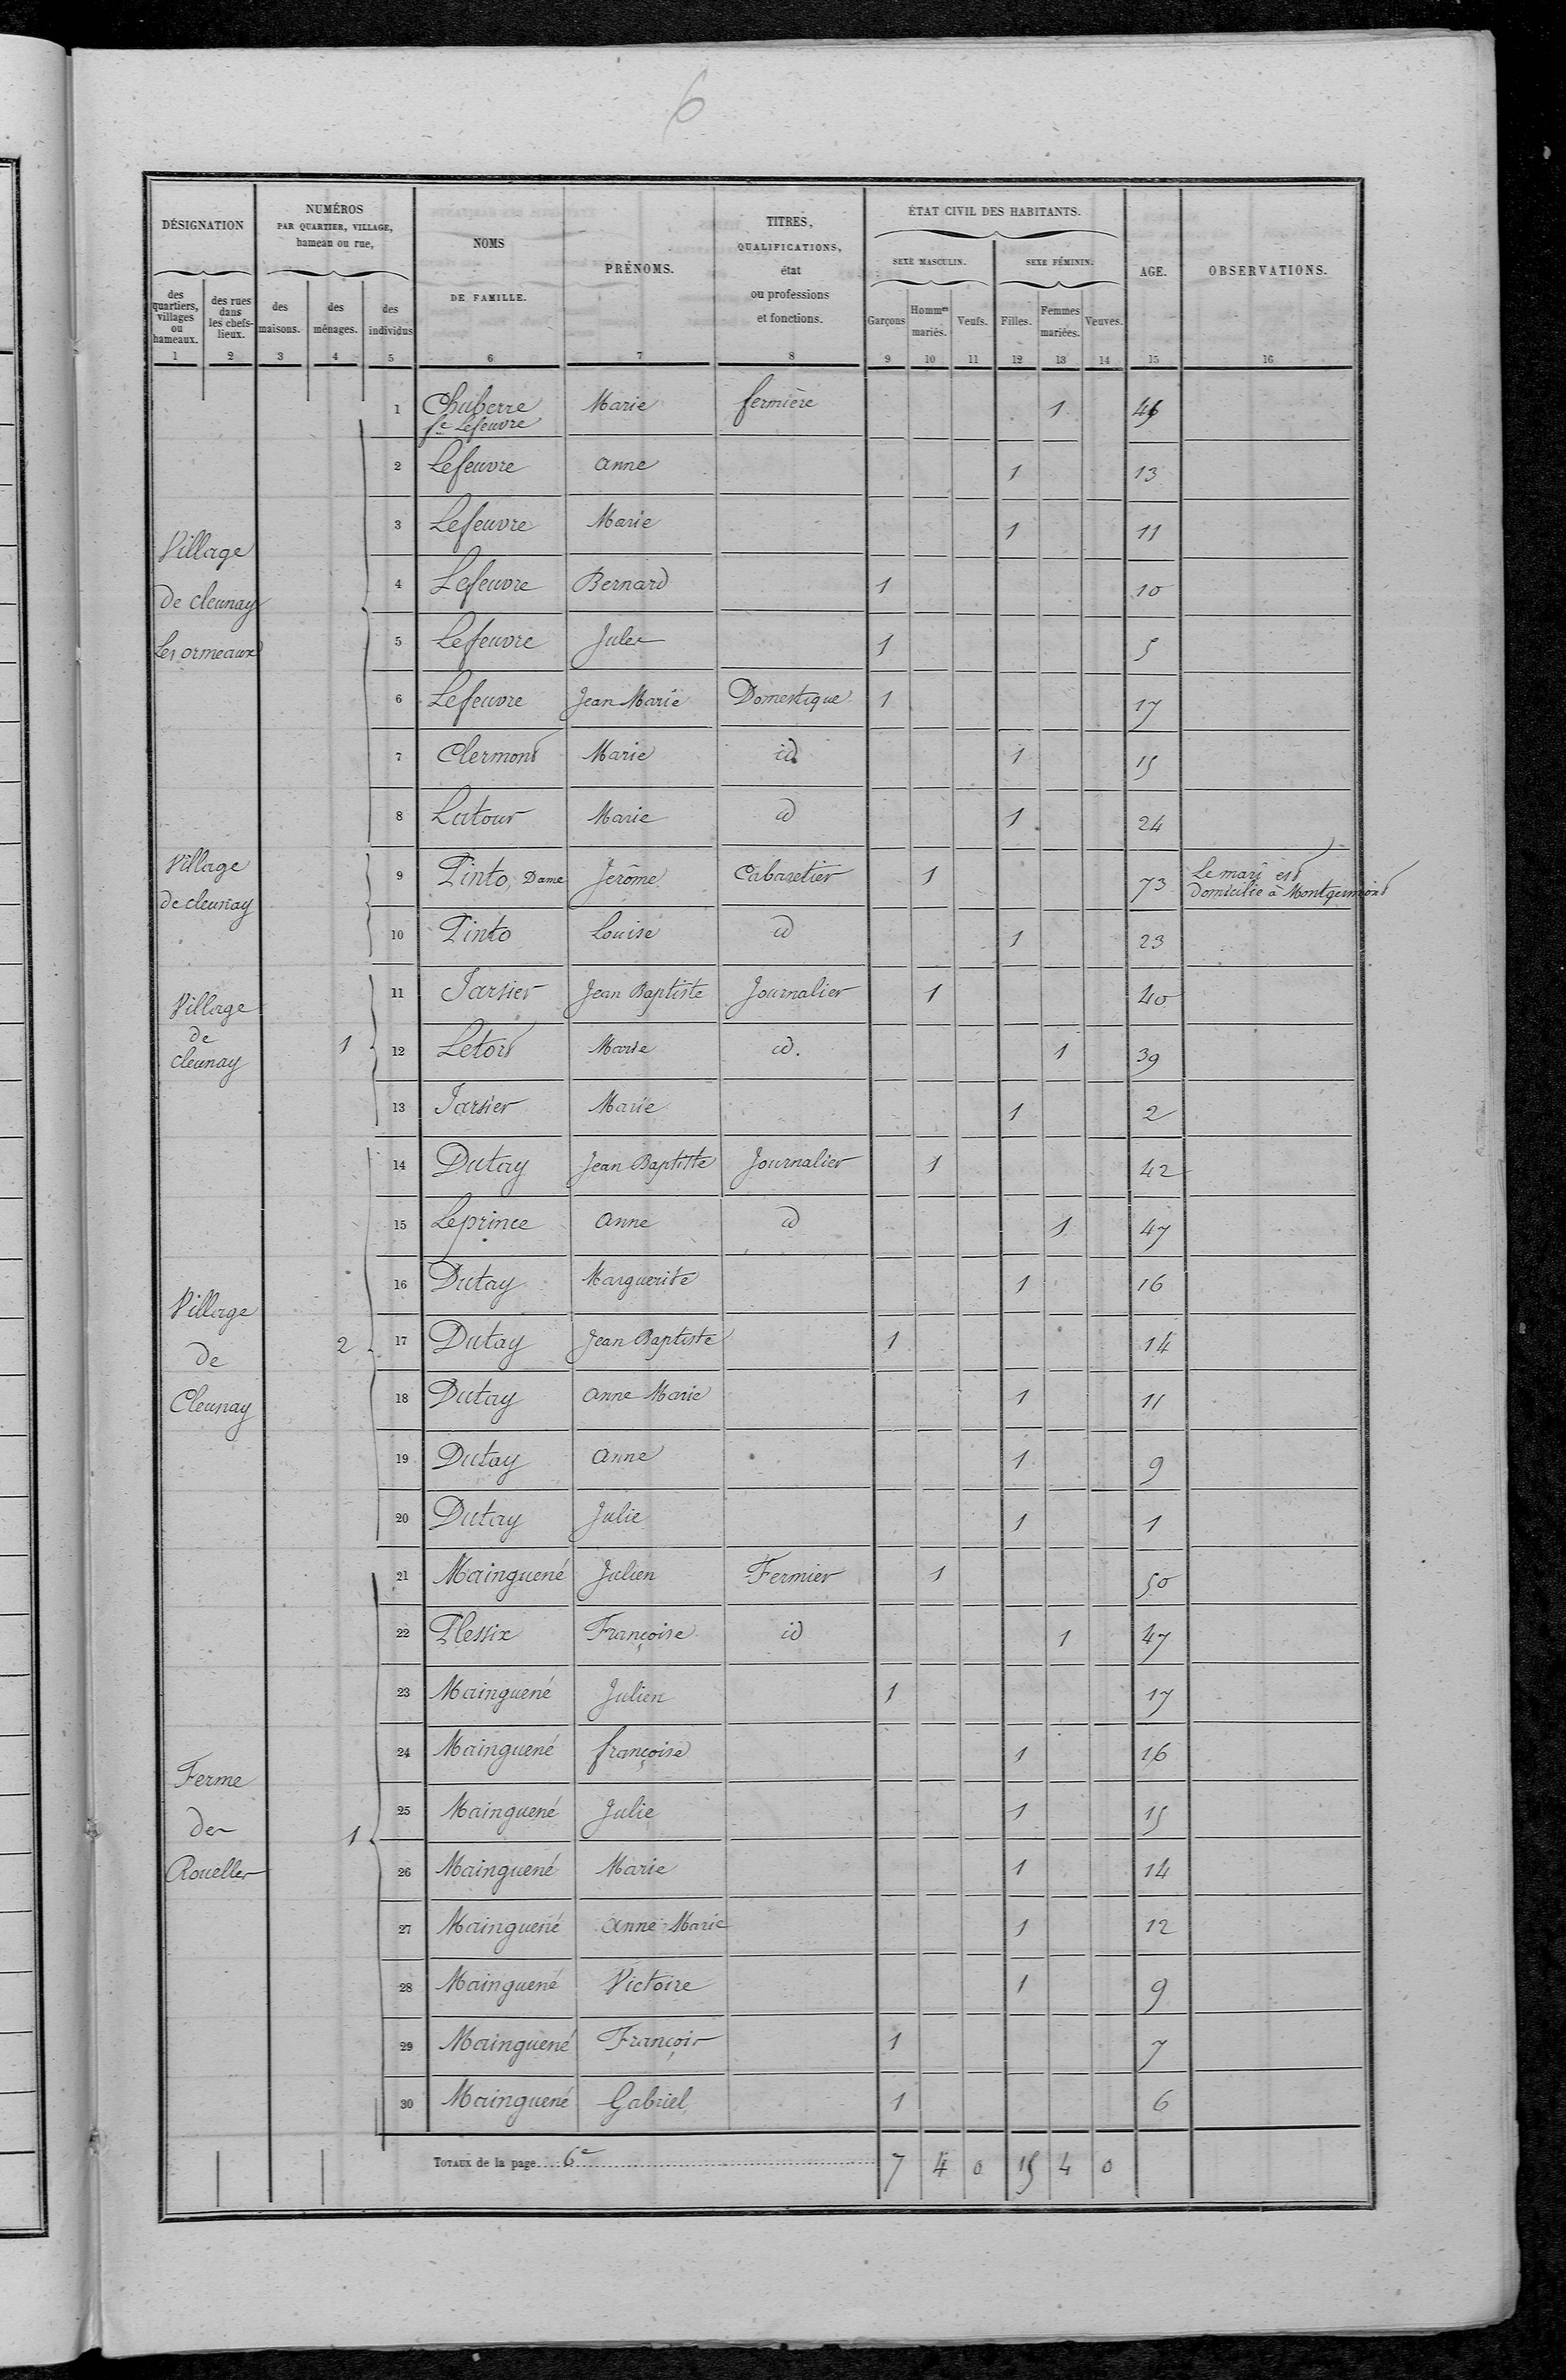 6
DÉSIGNATION
NUMÉROS
PAR QUARTIER, VILLAGE,
hameau ou rue,
NOMS
DE FAMILLE.
PRÉNOMS.
TITRES,
QUALIFICATIONS,
état
ou professions
et fonctions.
ÉTAT CIVIL DES HABITANTS.
SEXE MASCULIN.
SEXE FÉMININ.
AGE.
OBSERVATIONS.
des quartiers, villages ou hameaux.
des rues dans les chefs-lieux.
des maisons.
des ménages.
des individus
Garçons
Hommes mariés.
Veufs.
Filles.
Femmes mariées.
Veuves.
1 2 3 4 5 6 7 8 9 10 11 12 13 14 15 16
1 Chuberre Marie fermière 1
fe Lefeuvre
2 Lefeuvre anne 1 13
3 Lefeuvre Marie 1 11
Village
4 Lefeuvre Bernard 1 10
de cleunay
5 Lefeuvre Jules 1 5
Les ormeaux
6 Lefeuvre Jean Marie Domestique 1 17
7 Clermont Marie id. 1 15
8 Latour Marie id 1 24
Village
9 Pinto, Dame Jérôme Cabaretier 1 73 Le mari est
domicilié à Montgermont
de cleunay
10 Pinto Louise id 1 23
11 Jarsier Jean Baptiste Journalier 1 40
Village
de
cleunay
1
12 Letort Marie id. 1 39
13 Jarsier Marie 1 2
14 Dutay Jean Baptiste Journalier 1 42
15 Leprince anne id 1 47
16 Dutay Marguerite 1 16
Village
2 17 Dutay Jean Baptiste 1 14
de
18 Dutay anne Marie 1 11
Cleunay
19 Dutay anne 1 9
20 Dutay Julie 1 1
21 Mainguené Julien Fermier 1 50
22 Plessix Françoise id 1 47
23 Mainguené Julien 1 17
24 Mainguené françoise 1 16
Ferme
25 Mainguené Julie 1 15
des
1
Rouelles
26 Mainguené Marie 1 14
27 Mainguené anne Marie 1 12
28 Mainguené Victoire 1 9
29 Mainguené François 1 7
30 Mainguené Gabriel 1 6
TOTAUX de la page 6e 7 4 0 15 4 0